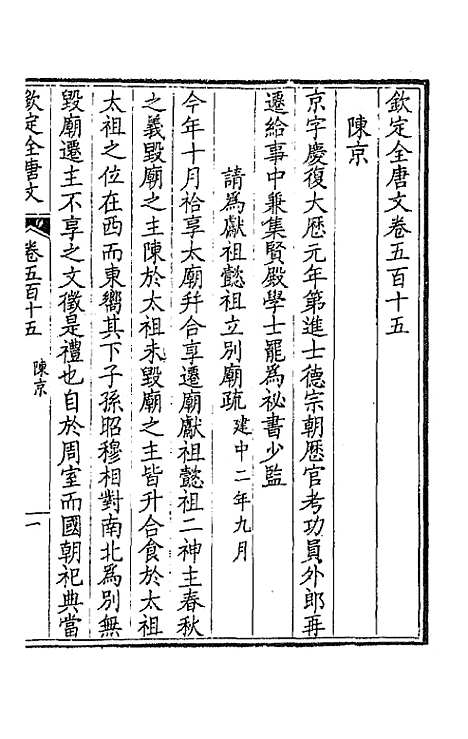 欽定全唐文卷五百十五
陳京
京字慶復大歷元年第進士德宗朝歷官考功員外郎再
遷給事中兼集賢殿學士罷為祕書少監
請為獻祖懿祖立別廟疏建中二年九月
今年十月祫享太廟幷合享遷廟獻祖懿祖二神主春秋
之義毀廟之主陳於太祖未毀廟之主皆升合食於太祖
太祖之位在西而東嚮其下子孫昭穆相對南北為別無
毀廟遷主不享之文徵是禮也自於周室而國朝祀典當
欽定全唐文
卷五百十五
陳京
一